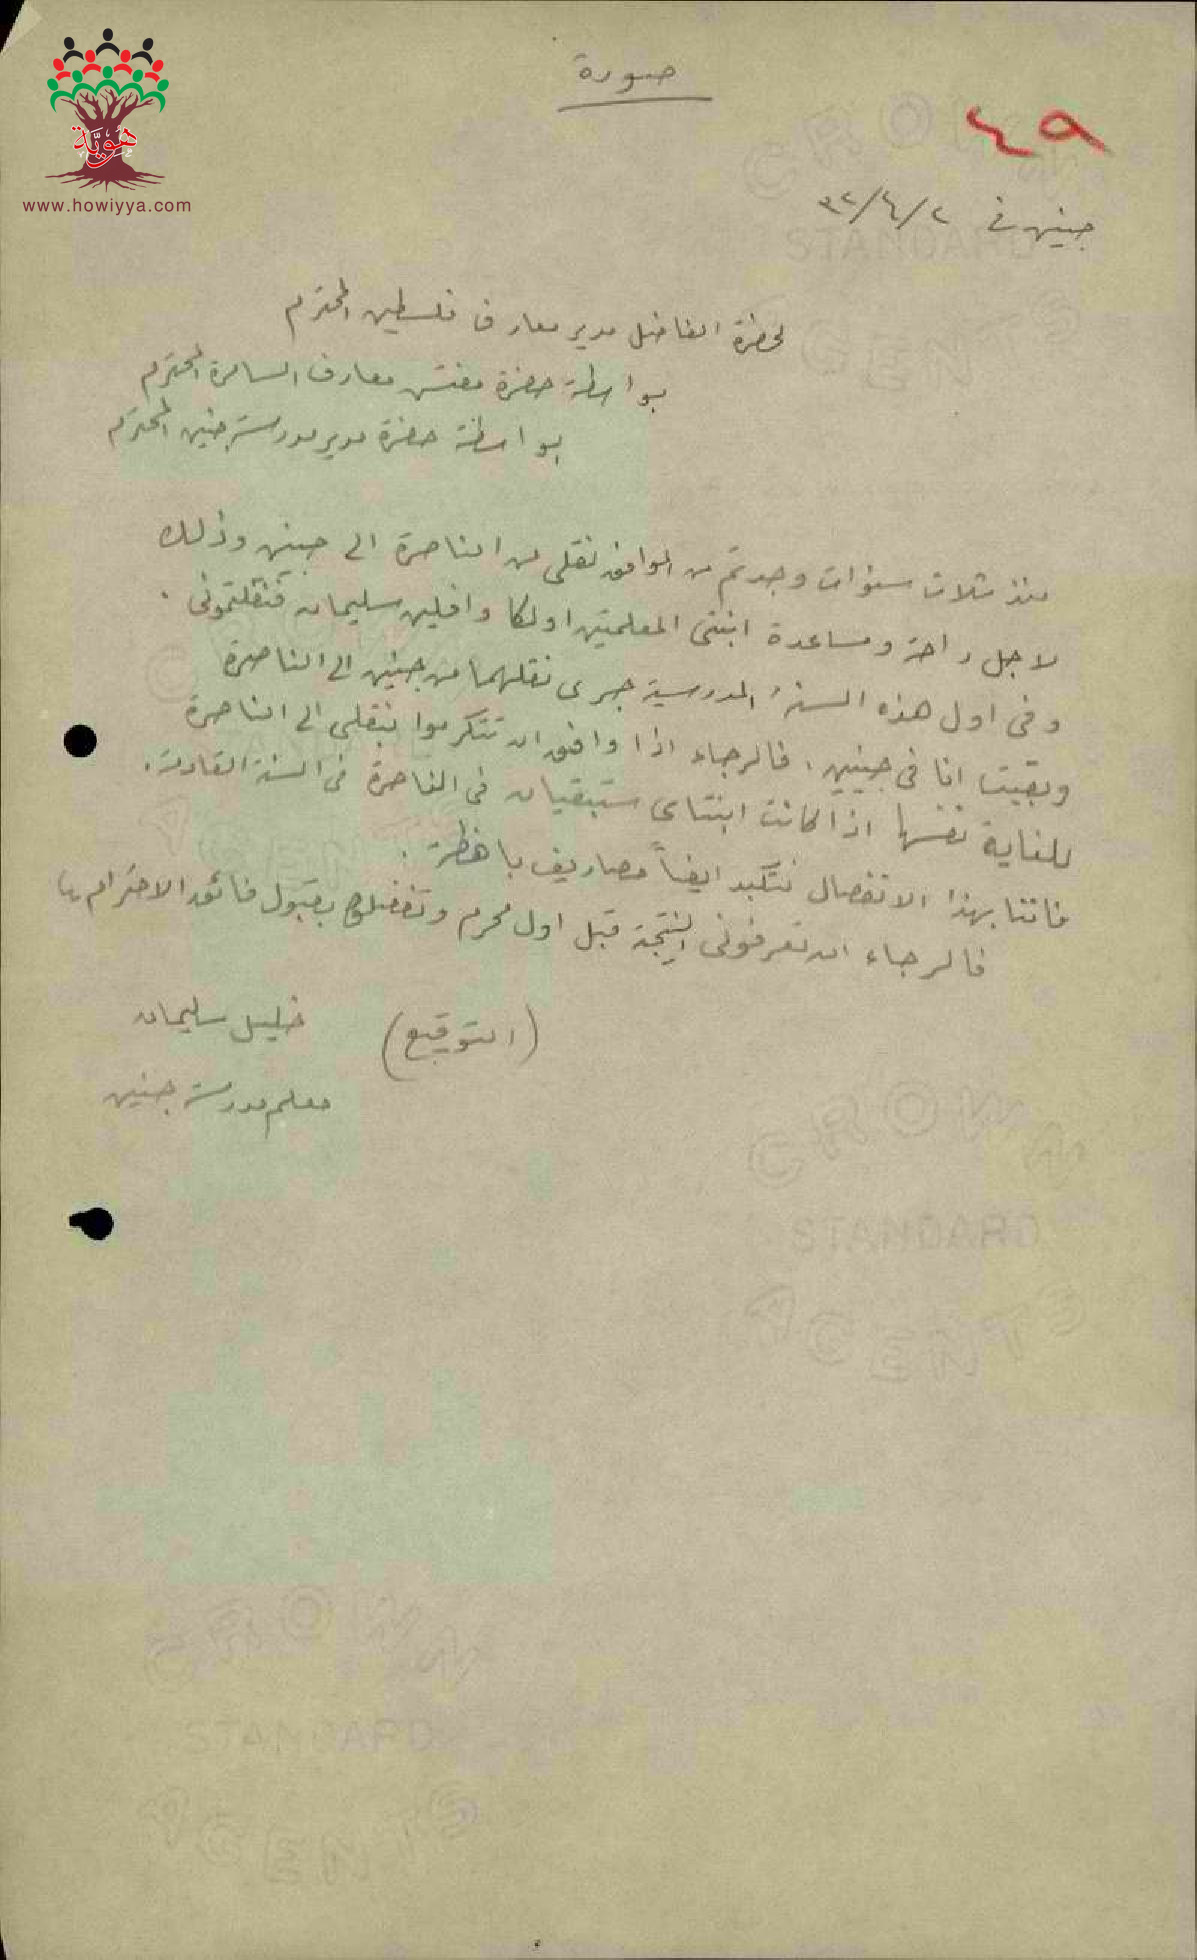 هوية
www.howiyya.com
صورة
٤٩
جنين في ٢/٤/٣٢
لحضرة الفاضل مدير معارف فلسطين المحترم
بواسطة حضرة مفتش معارف السامرة المحترم
بواسطة حضرة مدير مدرسة جنين المحترم
منذ ثلاث سنوات وجدتم من الموافق نقلي من الناصرة الى جنين وذلك
لاجل راحة ومساعدة ابنتي المعلمتين اولكا وافلين سليمان فنقلتموني .
وفي اول هذه السنة المدرسية جرى نقلهما من جنين الى الناصرة
وبقيت انا في جنين ، فالرجاء اذا وافق ان تتكرموا بنقلي الى الناصرة
للغاية نفسها اذا كانت ابنتاي ستبقيان في الناصرة في السنة القادمة .
فاننا بهذا الانفصال نتكبد ايضاً مصاريف باهظة .
فالرجاء ان تعرفوني النتيجة قبل اول محرم وتفضلوا بقبول فائق الاحترام
(التوقيع) خليل سليمان
معلم مدرسة جنين
CROWN
STANDARD
AGENTS
CROWN
STANDARD
AGENTS
CROWN
STANDARD
AGENTS